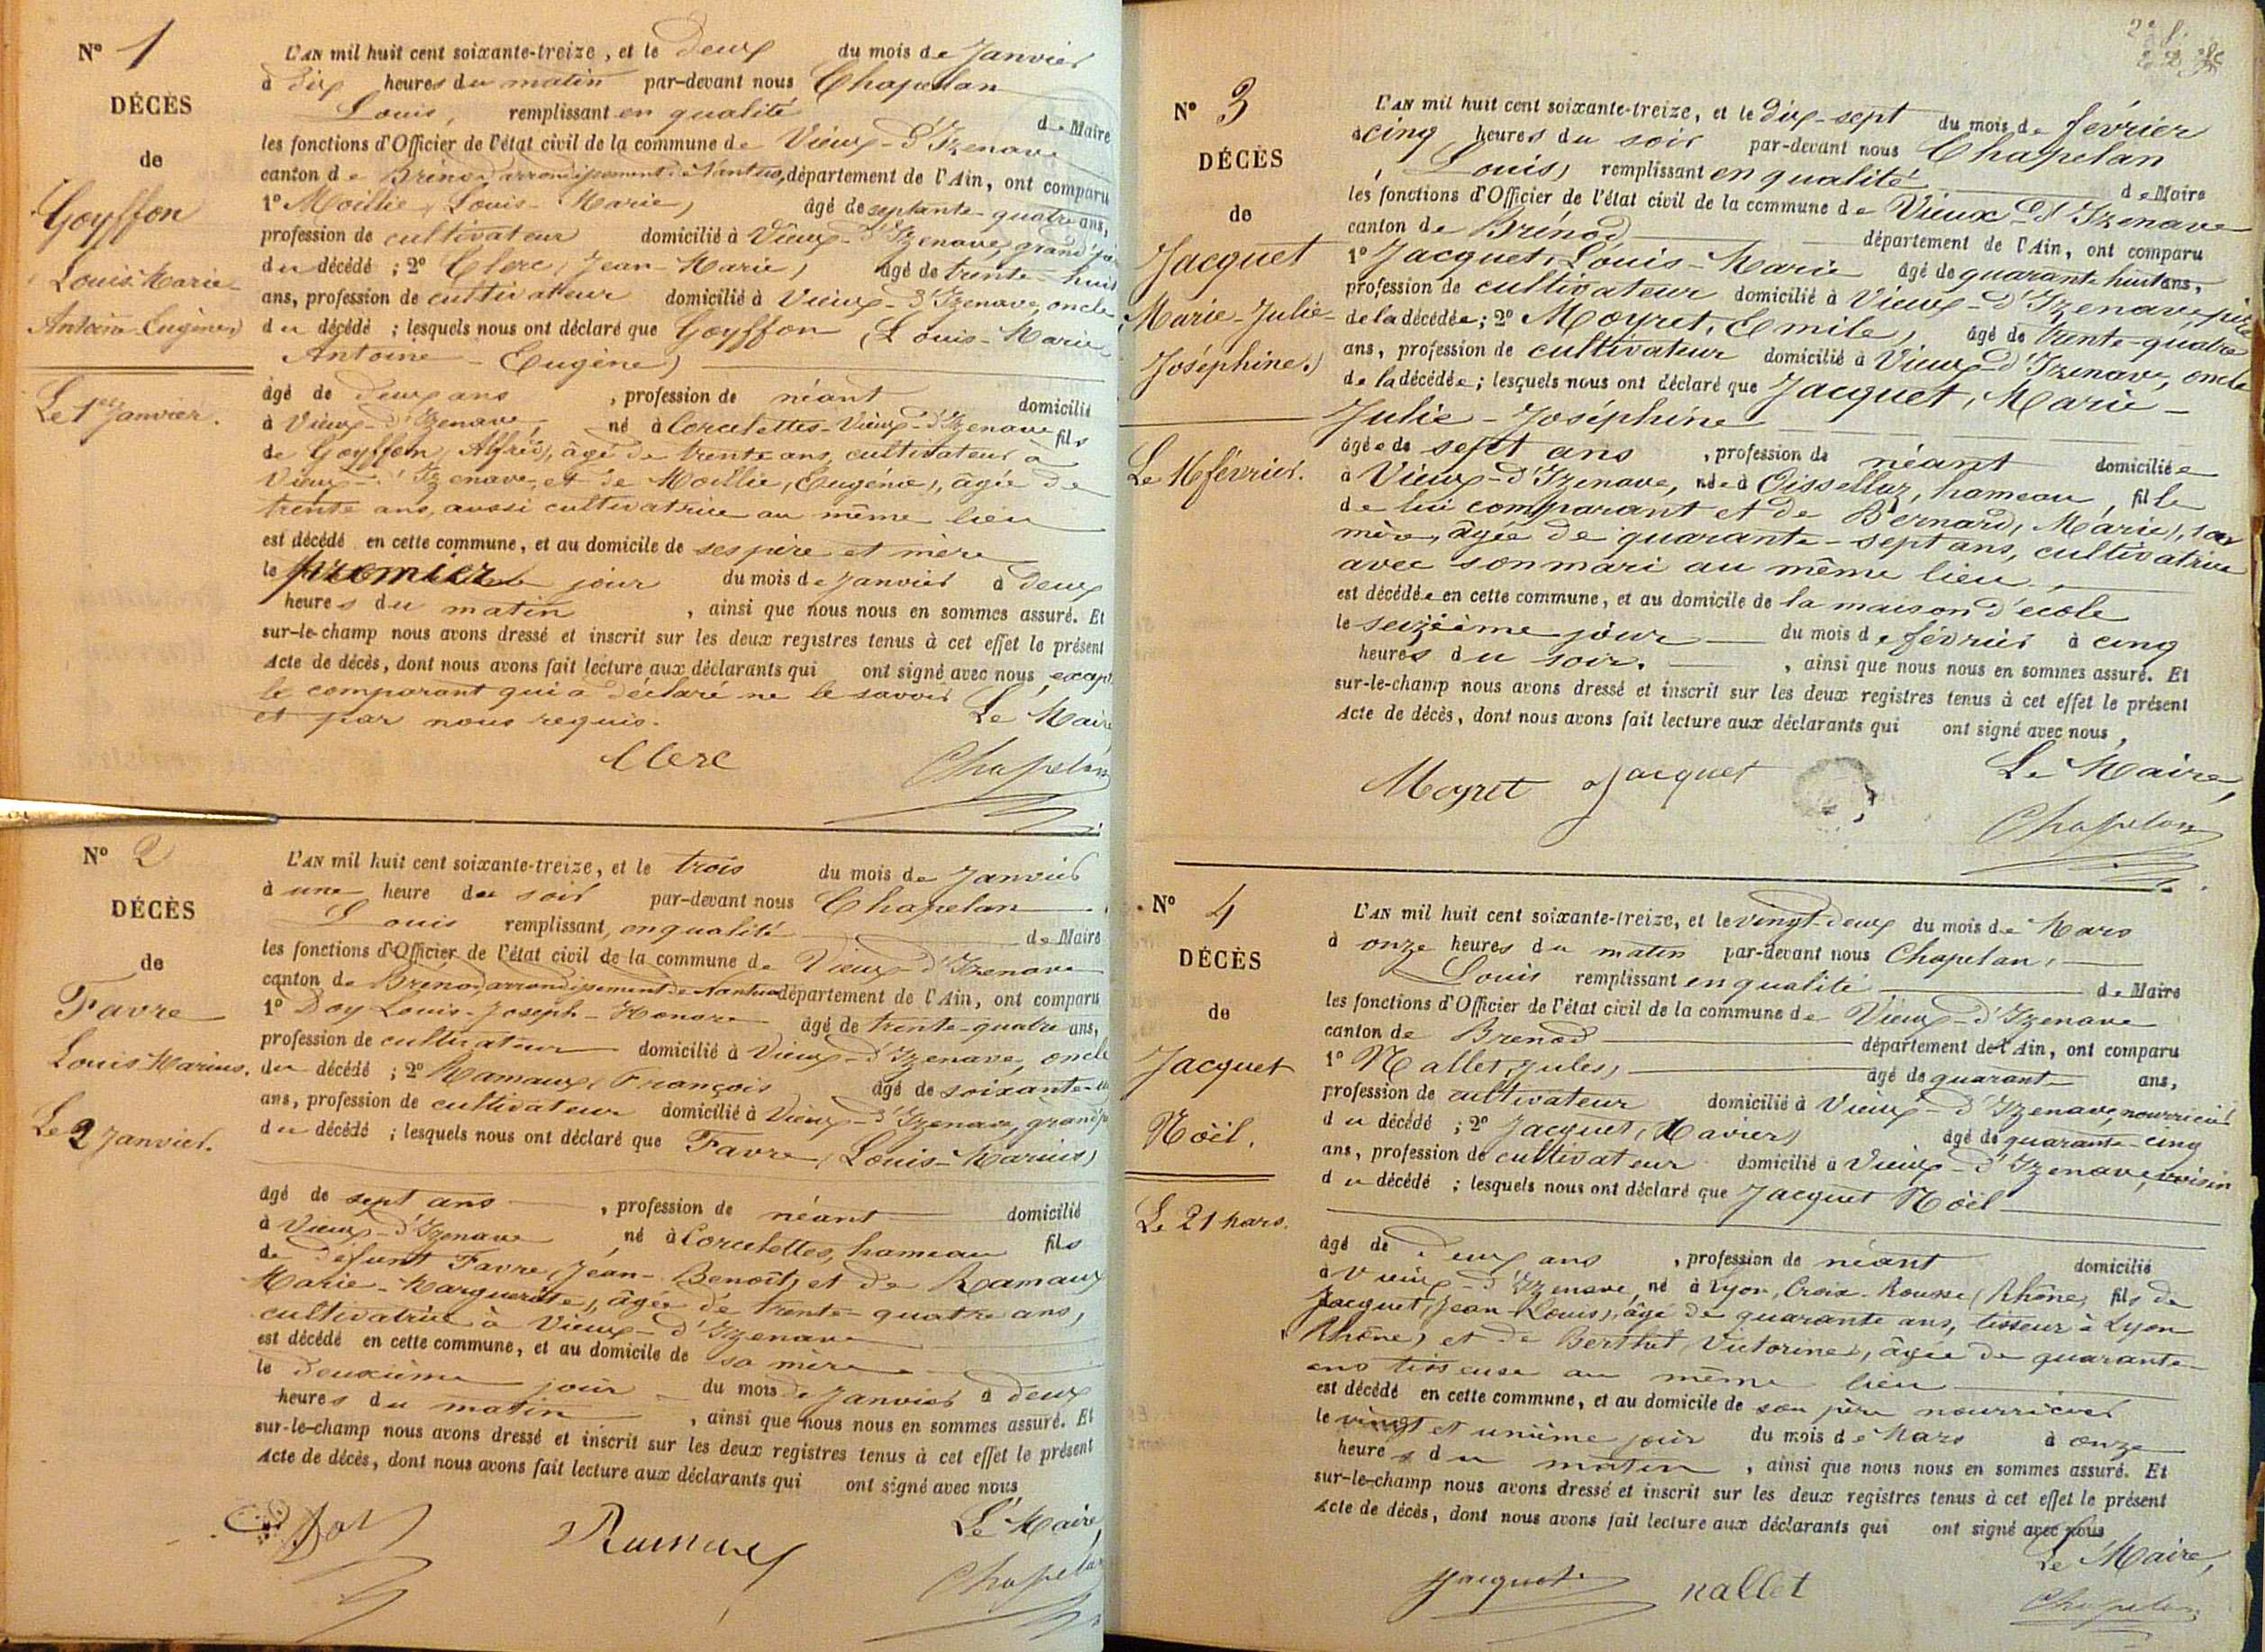 N° 1
DÉCÈS
de
Goyffon
Louis Marie
Antoine Eugène)
Le 1er Janvier.
L'AN mil huit cent soixante-treize, et le deux du mois de Janvier
à dix heures du matin par-devant nous Chapelan
Louis, remplissant en qualité de Maire
les fonctions d'Officier de l'état civil de la commune de Vieux-d'Izenave
canton de Brénod, arrondissement de Nantua, département de l'Ain, ont comparu
1° Moillie, Louis-Marie, âgé de septante-quatre ans,
profession de cultivateur domicilié à Vieux-d'Izenave, grand'père
du décédé ; 2° Clerc, Jean-Marie, âgé de trente-huit
ans, profession de cultivateur domicilié à Vieux-d'Izenave, oncle
du décédé ; lesquels nous ont déclaré que Goyffon (Louis-Marie
Antoine-Eugène)
âgé de deux ans, profession de néant domicilié
à Vieux-d'Izenave, né à Corcelettes-Vieux-d'Izenave fils
de Goyffon, Alfred, âgé de trente ans, cultivateur à
Vieux-d'Izenave, et de Moillie, (Eugénie), âgée de
trente ans, aussi cultivatrice au même lieu
est décédé en cette commune, et au domicile de ses père et mère
le premier jour du mois de Janvier à deux
heures du matin, ainsi que nous nous en sommes assuré. Et
sur-le-champ nous avons dressé et inscrit sur les deux registres tenus à cet effet le présent
Acte de décès, dont nous avons fait lecture aux déclarants qui ont signé avec nous, excepté
le comparant qui a déclaré ne le savoir
et par nous requis.
Le Maire,
Clerc Chapelan
N° 2
DÉCÈS
de
Favre
Louis Marius.
Le 2 Janvier.
L'AN mil huit cent soixante-treize, et le trois du mois de Janvier
à une heure du soir par-devant nous Chapelan
Louis remplissant, en qualité de Maire
les fonctions d'Officier de l'état civil de la commune de Vieux-d'Izenave
canton de Brénod, arrondissement de Nantua département de l'Ain, ont comparu
1° Doy Louis-Joseph-Honoré âgé de trente-quatre ans,
profession de cultivateur domicilié à Vieux-d'Izenave, oncle
du décédé ; 2° Ramaux, François âgé de soixante-
ans, profession de cultivateur domicilié à Vieux-d'Izenave, grand'p
du décédé ; lesquels nous ont déclaré que Favre (Louis-Marius)
âgé de sept ans, profession de néant domicilié
à Vieux-d'Izenave né à Corcelettes, hameau fils
de défunt Favre, Jean-Benoît, et de Ramaux
Marie-Marguerite), âgée de trente-quatre ans,
cultivatrice à Vieux-d'Izenave
est décédé en cette commune, et au domicile de sa mère
le deuxième jour du mois de Janvier à deux
heures du matin, ainsi que nous nous en sommes assuré. Et
sur-le-champ nous avons dressé et inscrit sur les deux registres tenus à cet effet le présent
Acte de décès, dont nous avons fait lecture aux déclarants qui ont signé avec nous
Le Maire,
Doy Ramaux Chapelan
N° 3
DÉCÈS
de
Jacquet
Marie-Julie-
Joséphine.)
Le 16 février.
L'AN mil huit cent soixante-treize, et le dix-sept du mois de février
à cinq heures du soir par-devant nous Chapelan
Louis, remplissant en qualité de Maire
les fonctions d'Officier de l'état civil de la commune de Vieux-d'Izenave
canton de Brénod département de l'Ain, ont comparu
1° Jacquet, Louis-Marie âgé de quarante huit ans,
profession de cultivateur domicilié à Vieux-d'Izenave, père
de la décédée ; 2° Moyret, Emile, âgé de trente-quatre
ans, profession de cultivateur domicilié à Vieux-d'Izenave, oncle
de la décédée ; lesquels nous ont déclaré que Jacquet, Marie-
Julie-Joséphine
âgée de sept ans, profession de néant domiciliée
à Vieux-d'Izenave, née à Oissellaz, hameau, fille
de lui comparant et de Bernard, Marie, sa
mère, âgée de quarante-sept ans, cultivatrice
avec son mari au même lieu.
est décédée en cette commune, et au domicile de la maison d'école
le seizième jour du mois de février à cinq
heures du soir., ainsi que nous nous en sommes assuré. Et
sur-le-champ nous avons dressé et inscrit sur les deux registres tenus à cet effet le présent
Acte de décès, dont nous avons fait lecture aux déclarants qui ont signé avec nous,
Le Maire,
Moyret Jacquet Chapelan
N° 4
DÉCÈS
de
Jacquet
Noël.
Le 21 Mars.
L'AN mil huit cent soixante-treize, et le vingt-deux du mois de Mars
à onze heures du matin par-devant nous Chapelan,
Louis remplissant en qualité de Maire
les fonctions d'Officier de l'état civil de la commune de Vieux-d'Izenave
canton de Brenod département de l'Ain, ont comparu
1° Nallet, Jules, âgé de quarante ans,
profession de cultivateur domicilié à Vieux-d'Izenave, nourricier
du décédé ; 2° Jacquet, (Xavier) âgé de quarante-cinq
ans, profession de cultivateur domicilié à Vieux-d'Izenave, voisin
du décédé ; lesquels nous ont déclaré que Jacquet Noël
âgé de deux ans, profession de néant domicilié
à Vieux-d'Izenave, né à Lyon, Croix-Rousse (Rhône) fils de
Jacquet, Jean-Louis), âgé de quarante ans, tisseur à Lyon
Rhône) et de Berthet, Victorine), âgée de quarante-
ans tisseuse au même lieu
est décédé en cette commune, et au domicile de son père nourricier
le vingt et unième jour du mois de Mars à onze
heures du matin, ainsi que nous nous en sommes assuré. Et
sur-le-champ nous avons dressé et inscrit sur les deux registres tenus à cet effet le présent
Acte de décès, dont nous avons fait lecture aux déclarants qui ont signé avec nous
Le Maire,
Jacquet Nallet Chapelan